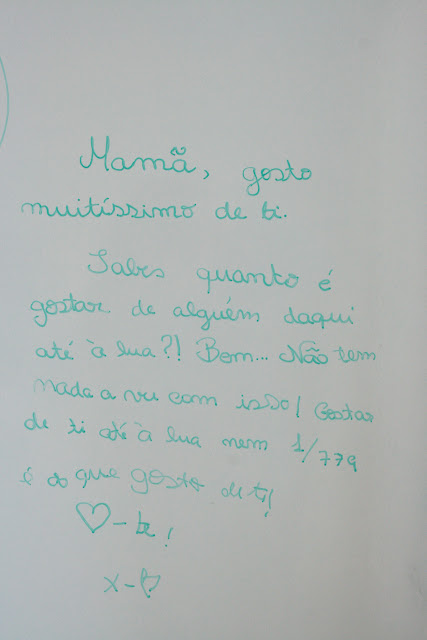 Mamã, gosto
muitíssimo de ti.
Sabes quanto é
gostar de alguém daqui
até à lua?! Bom... Não tem
nada a ver com isso! Gostar
de ti até à lua nem 1/779
é do que gosto de ti!
♡-te!
x-♡